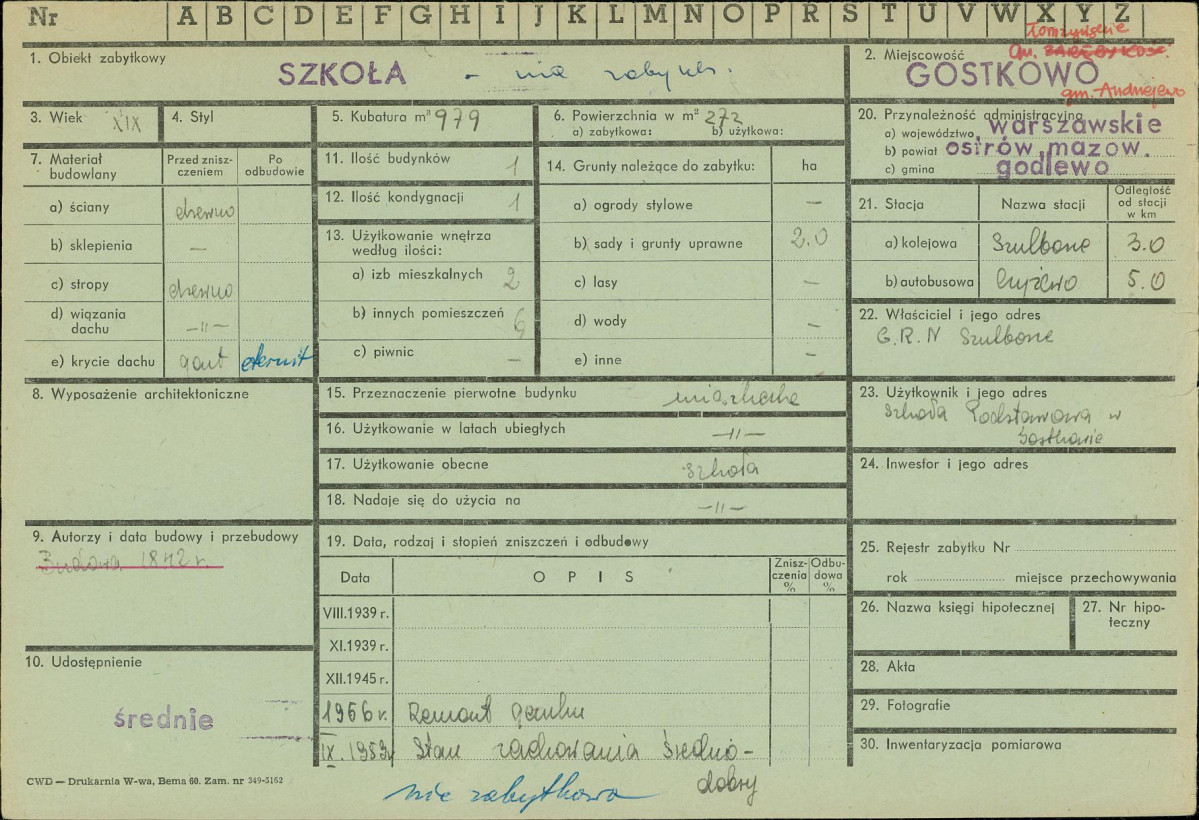 Nr A B C D E F G H I J K L M N O P R S T U V W X Y Z
1. Obiekt zabytkowy
SZKOŁA - nie zabytk.
2. Miejscowość
łomżyńskie
gm. ZARĘBY KOŚC.
GOSTKOWO
gm. Andrzejewo
3. Wiek XIX
4. Styl
5. Kubatura m³ 979
6. Powierzchnia w m² 272
a) zabytkowa: b) użytkowa:
20. Przynależność administracyjna
a) województwo warszawskie
b) powiat ostrów mazow.
c) gmina godlewo
7. Materiał budowlany
Przed zniszczeniem
Po odbudowie
a) ściany drewno
b) sklepienia —
c) stropy drewno
d) wiązania dachu —"—
e) krycie dachu gont eternit
11. Ilość budynków 1
12. Ilość kondygnacji 1
13. Użytkowanie wnętrza według ilości:
a) izb mieszkalnych 2
b) innych pomieszczeń 6
c) piwnic —
14. Grunty należące do zabytku: ha
a) ogrody stylowe —
b) sady i grunty uprawne 2.0
c) lasy —
d) wody —
e) inne —
21. Stacja
Nazwa stacji
Odległość od stacji w km
a) kolejowa Szulborze 3.0
b) autobusowa Czyżewo 5.0
22. Właściciel i jego adres
G.R.N Szulborze
8. Wyposażenie architektoniczne
15. Przeznaczenie pierwotne budynku mieszkalne
16. Użytkowanie w latach ubiegłych —"—
17. Użytkowanie obecne szkoła
18. Nadaje się do użycia na —"—
23. Użytkownik i jego adres
Szkoła Podstawowa w
Gostkowie
24. Inwestor i jego adres
9. Autorzy i data budowy i przebudowy
Budowa 1842 r.
19. Data, rodzaj i stopień zniszczeń i odbudowy
Data
OPIS
Zniszczenia %
Odbudowa %
VIII.1939 r.
XI.1939 r.
XII.1945 r.
1956 r. Remont
IX.1959 r Stan zachowania średnio-
dobry
25. Rejestr zabytku Nr
rok miejsce przechowywania
26. Nazwa księgi hipotecznej
27. Nr hipoteczny
28. Akta
29. Fotografie
30. Inwentaryzacja pomiarowa
10. Udostępnienie
średnie
CWD — Drukarnia W-wa, Bema 60. Zam. nr 349-5162
nie zabytkowa